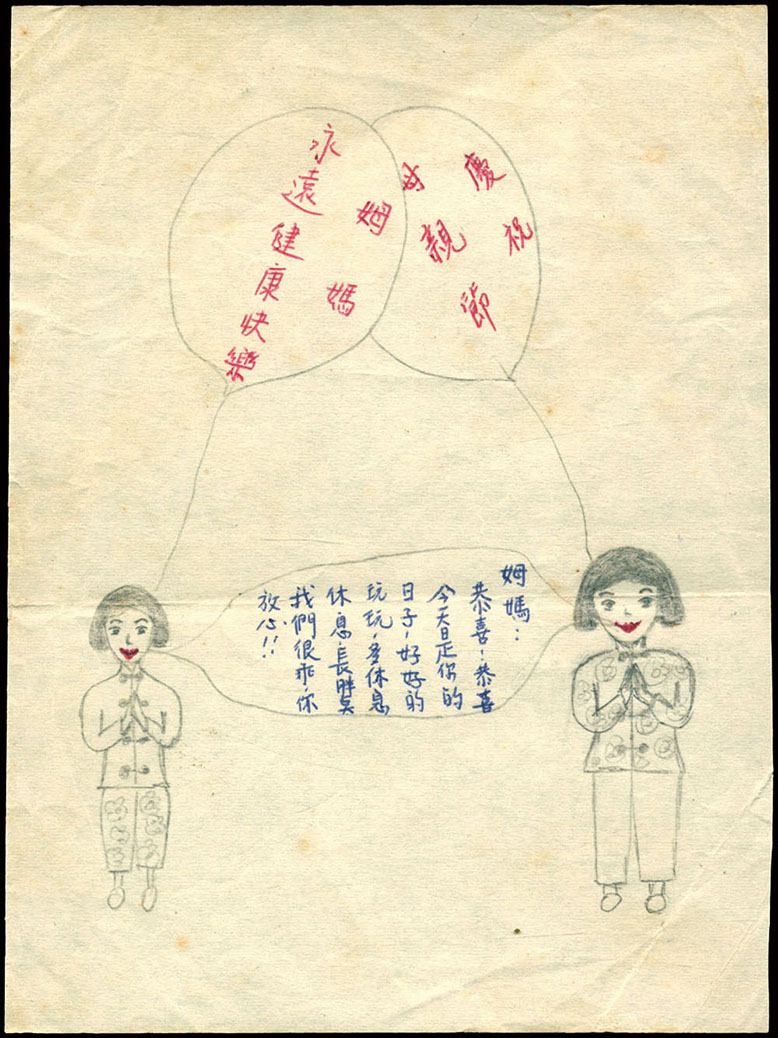 慶祝
母親節
姆媽
永遠健康快樂
姆媽：
恭喜，恭喜
今天是你的
日子，好好的
玩玩，多休息
休息，長胖奌
我們很乖，你
放心！！